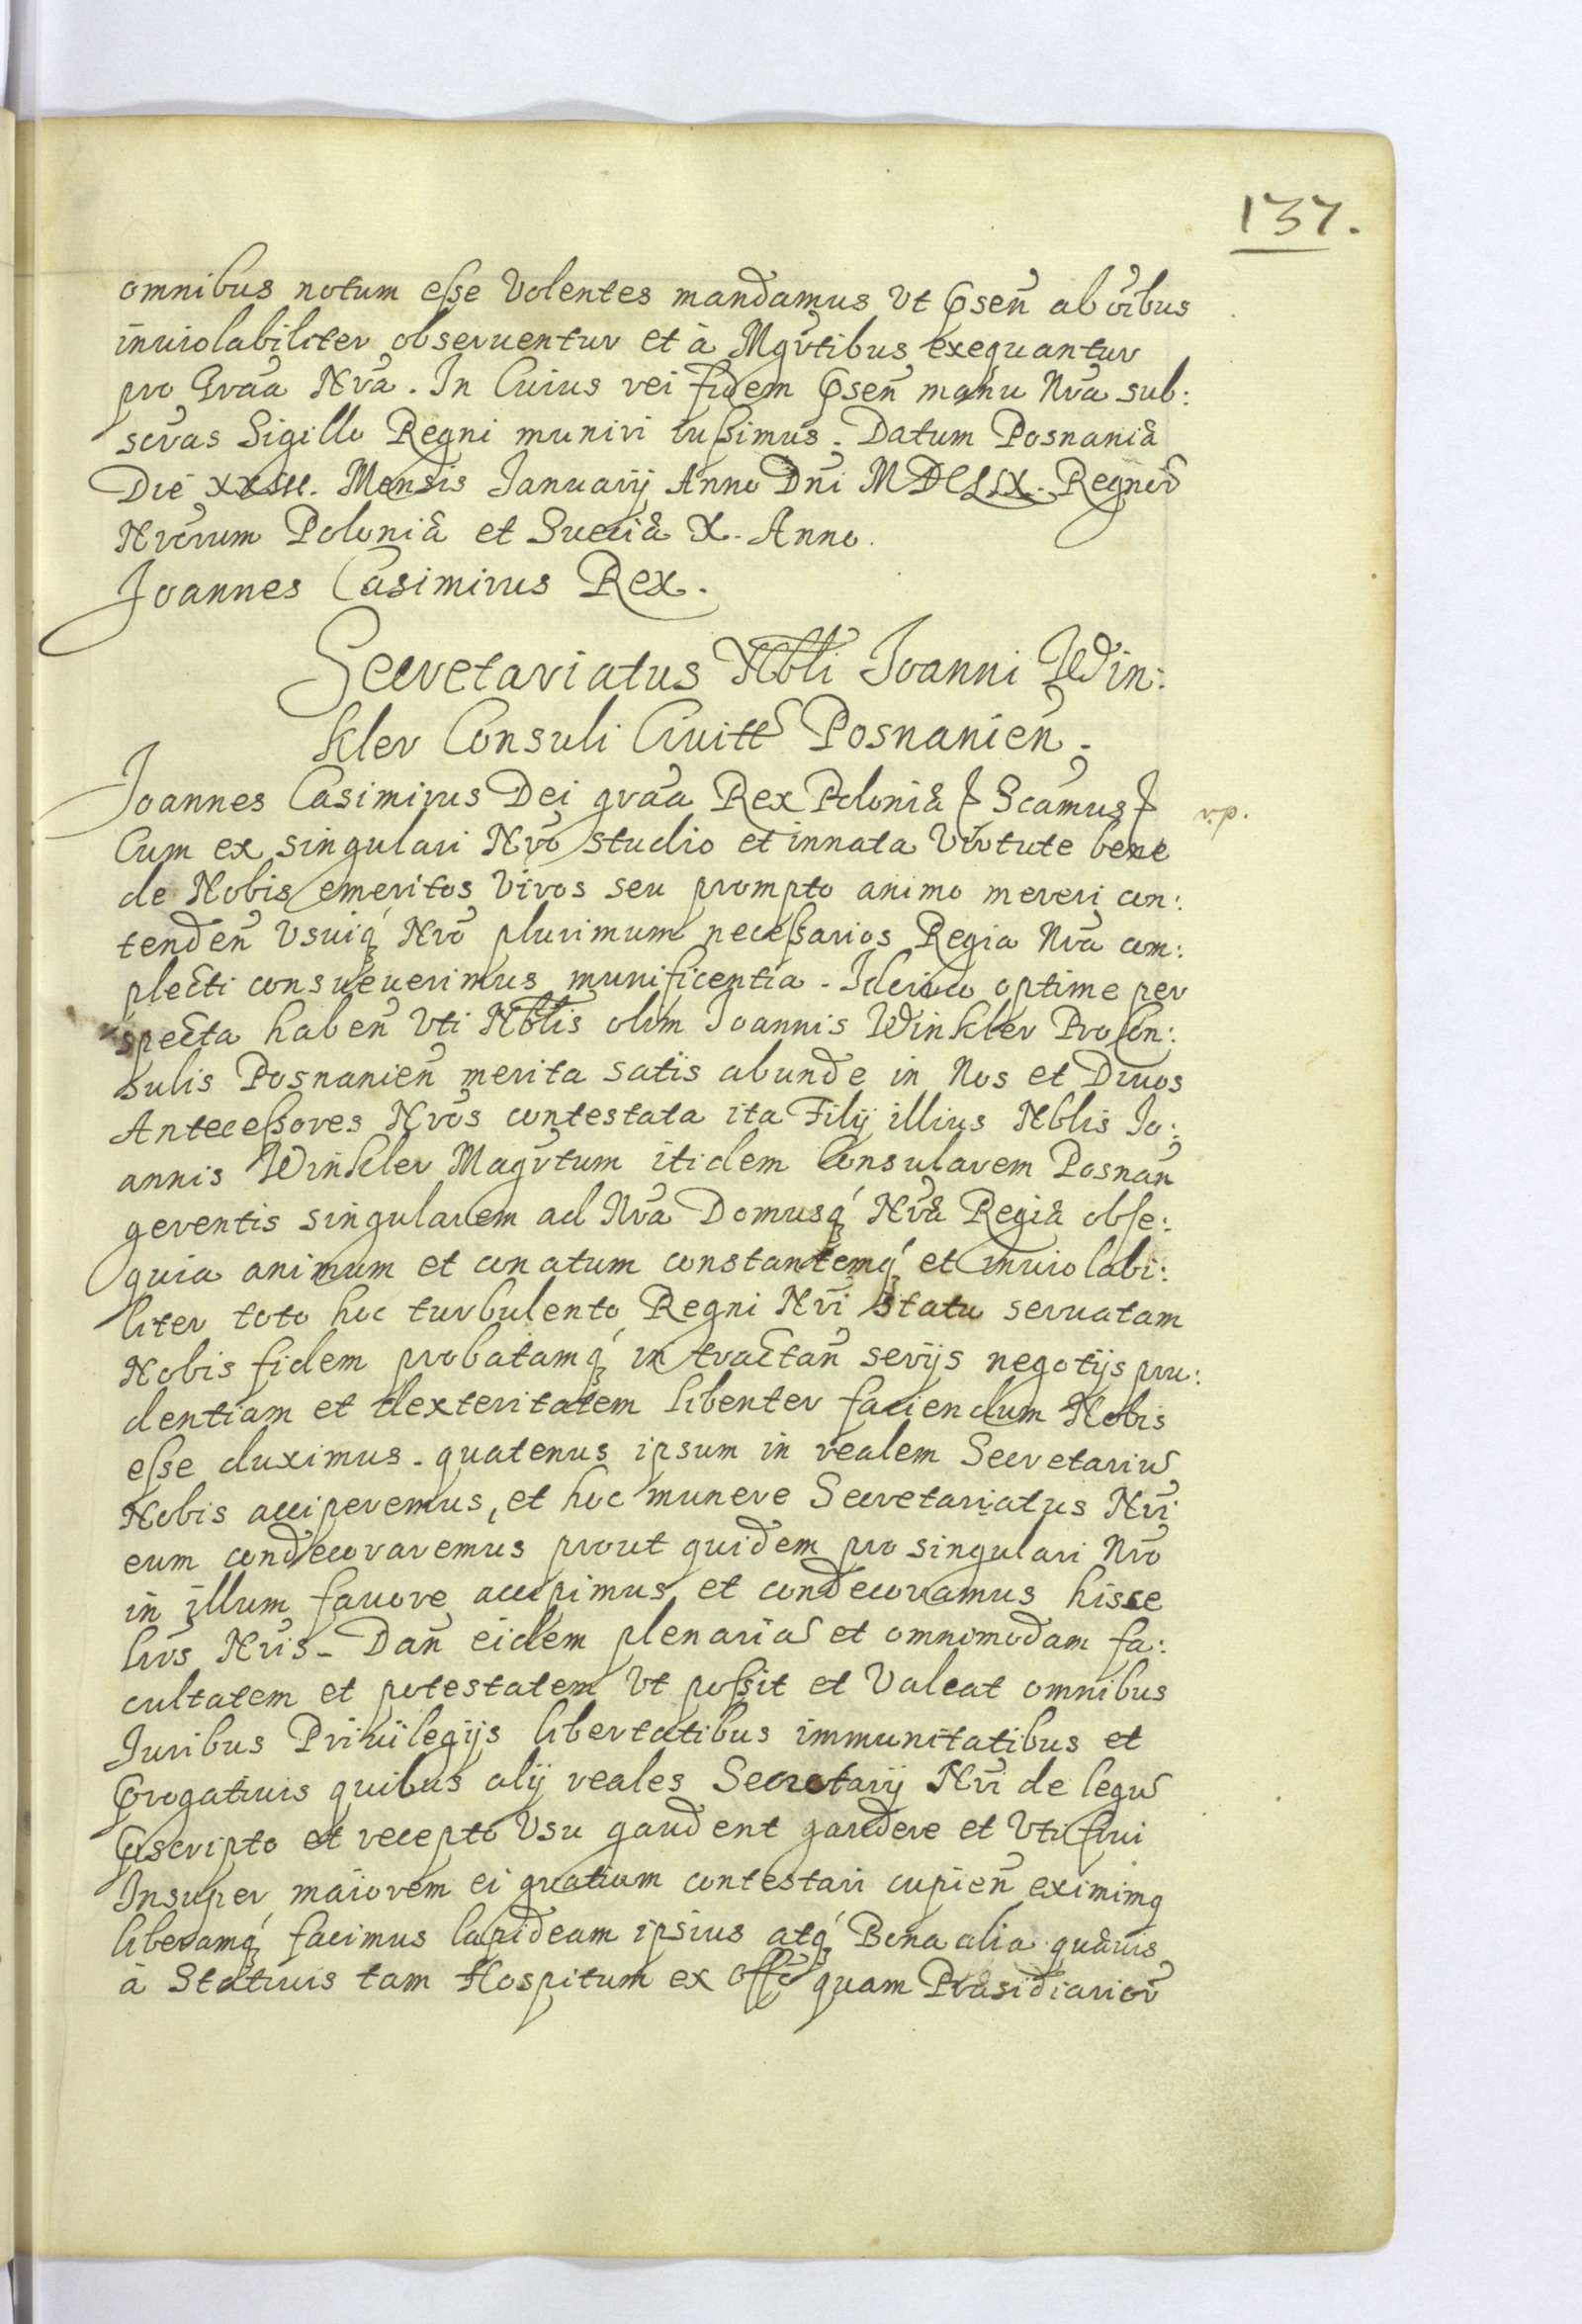 137.
omnibus notum esse Volentes mandamus Vt Psen̄ ab oībus
inuiolabiliter obseruentur et à Mgrtibus exequantur
pro Graa Nra. In Cuius rei fidem Psen̄ manu Nra sub:
scras Sigillo Regni muniri iussimus. Datum Posnaniæ
Die XXIII. Mensis Januarij Anno Dni MDCLIX. Regnor̄
Nrorum Poloniæ et Sueciæ X. Anno.
Joannes Casimirus Rex.
Secretariatus Nbli Joanni Win:
kler Consuli Ciuitt̄ Posnanien̄.
Joannes Casimirus Dei graa Rex Poloniæ & Scamus &
v.p.
Cum ex singulari Nro studio et innata Virtute bene
de Nobis emeritos Viros seu prompto animo mereri con:
tenden̄ Vsuiq́ Nro plurimum necessarios Regia Nra com:
plecti consueuerimus munificentia. Idcirco optime per
specta haben̄ Vti Nblis olim Joannis Winkler ProCon:
sulis Posnanien̄ merita satis abunde in Nos et Diuos
Antecessores Nros contestata ita Filij illius Nblis Jo:
annis Winkler Magrtum itidem Consularem Posnan̄
gerentis singularem ad Nra Domusq́ Nræ Regiæ obse:
quia animum et conatum constantemq́ et inuiolabi:
liter toto hoc turbulento Regni Nri statu seruatam
Nobis fidem probatamq́ in tractan̄ serijs negotijs pru:
dentiam et dexteritatem libenter faciendum Nobis
esse duximus. quatenus ipsum in realem Secretariū
Nobis acciperemus, et hoc munere Secretariatus Nri
eum condecoraremus prout quidem pro singulari Nro
in illum fauore accipimus et condecoramus hisce
lirs Nris. Dan̄ eidem plenariā et omnimodam fa:
cultatem et potestatem Vt possit et Valeat omnibus
Juribus Priuilegijs libertatibus immunitatibus et
Progatiuis quibus alij reales Secretarij Nri de legū
Pscripto et recepto Vsu gaudent gaudere et Vti frui
Insuper maiorem ei gratiam contestari cupien̄ eximimq
liberamq́ facimus lapideam ipsius atq́ Bona alia quæuis
à Statiuis tam Hospitum ex Offo quam Præsidiarior̄